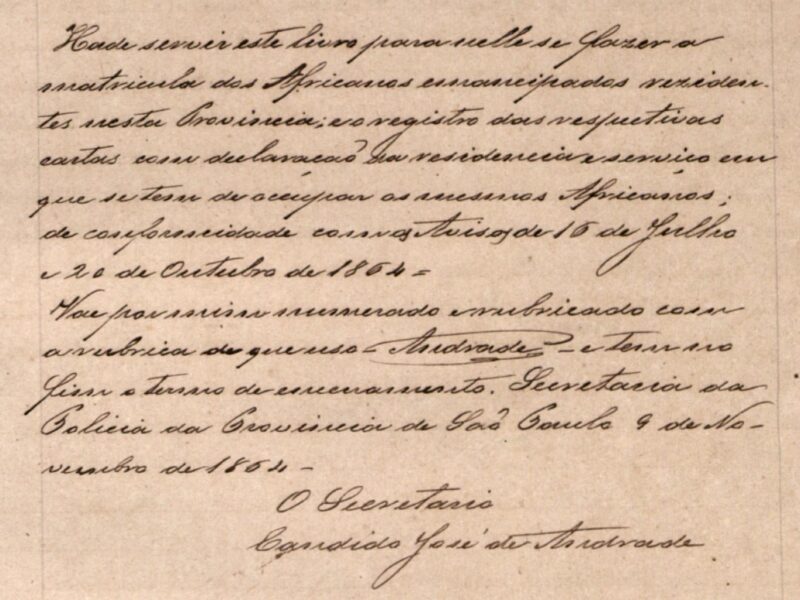 Hade servir este livro para nelle se fazer a
matricula dos Africanos emancipados reziden-
tes nesta Provincia; e o registro das respectivas
cartas com declaracaõ da residencia e serviço em
que se tem de occupar os mesmos Africános;
de conformidade com os Avisos de 16 de Julho
e 20 de Outubro de 1864 =
Vae por mim numerado e rubricado com
a rubrica de que uso - Andrade - e tem no
fim o termo de encerramento. Secretaria da
Policia da Provincia de Saõ Paulo 9 de No-
vembro de 1864 -
O Secretario
Candido José de Andrade